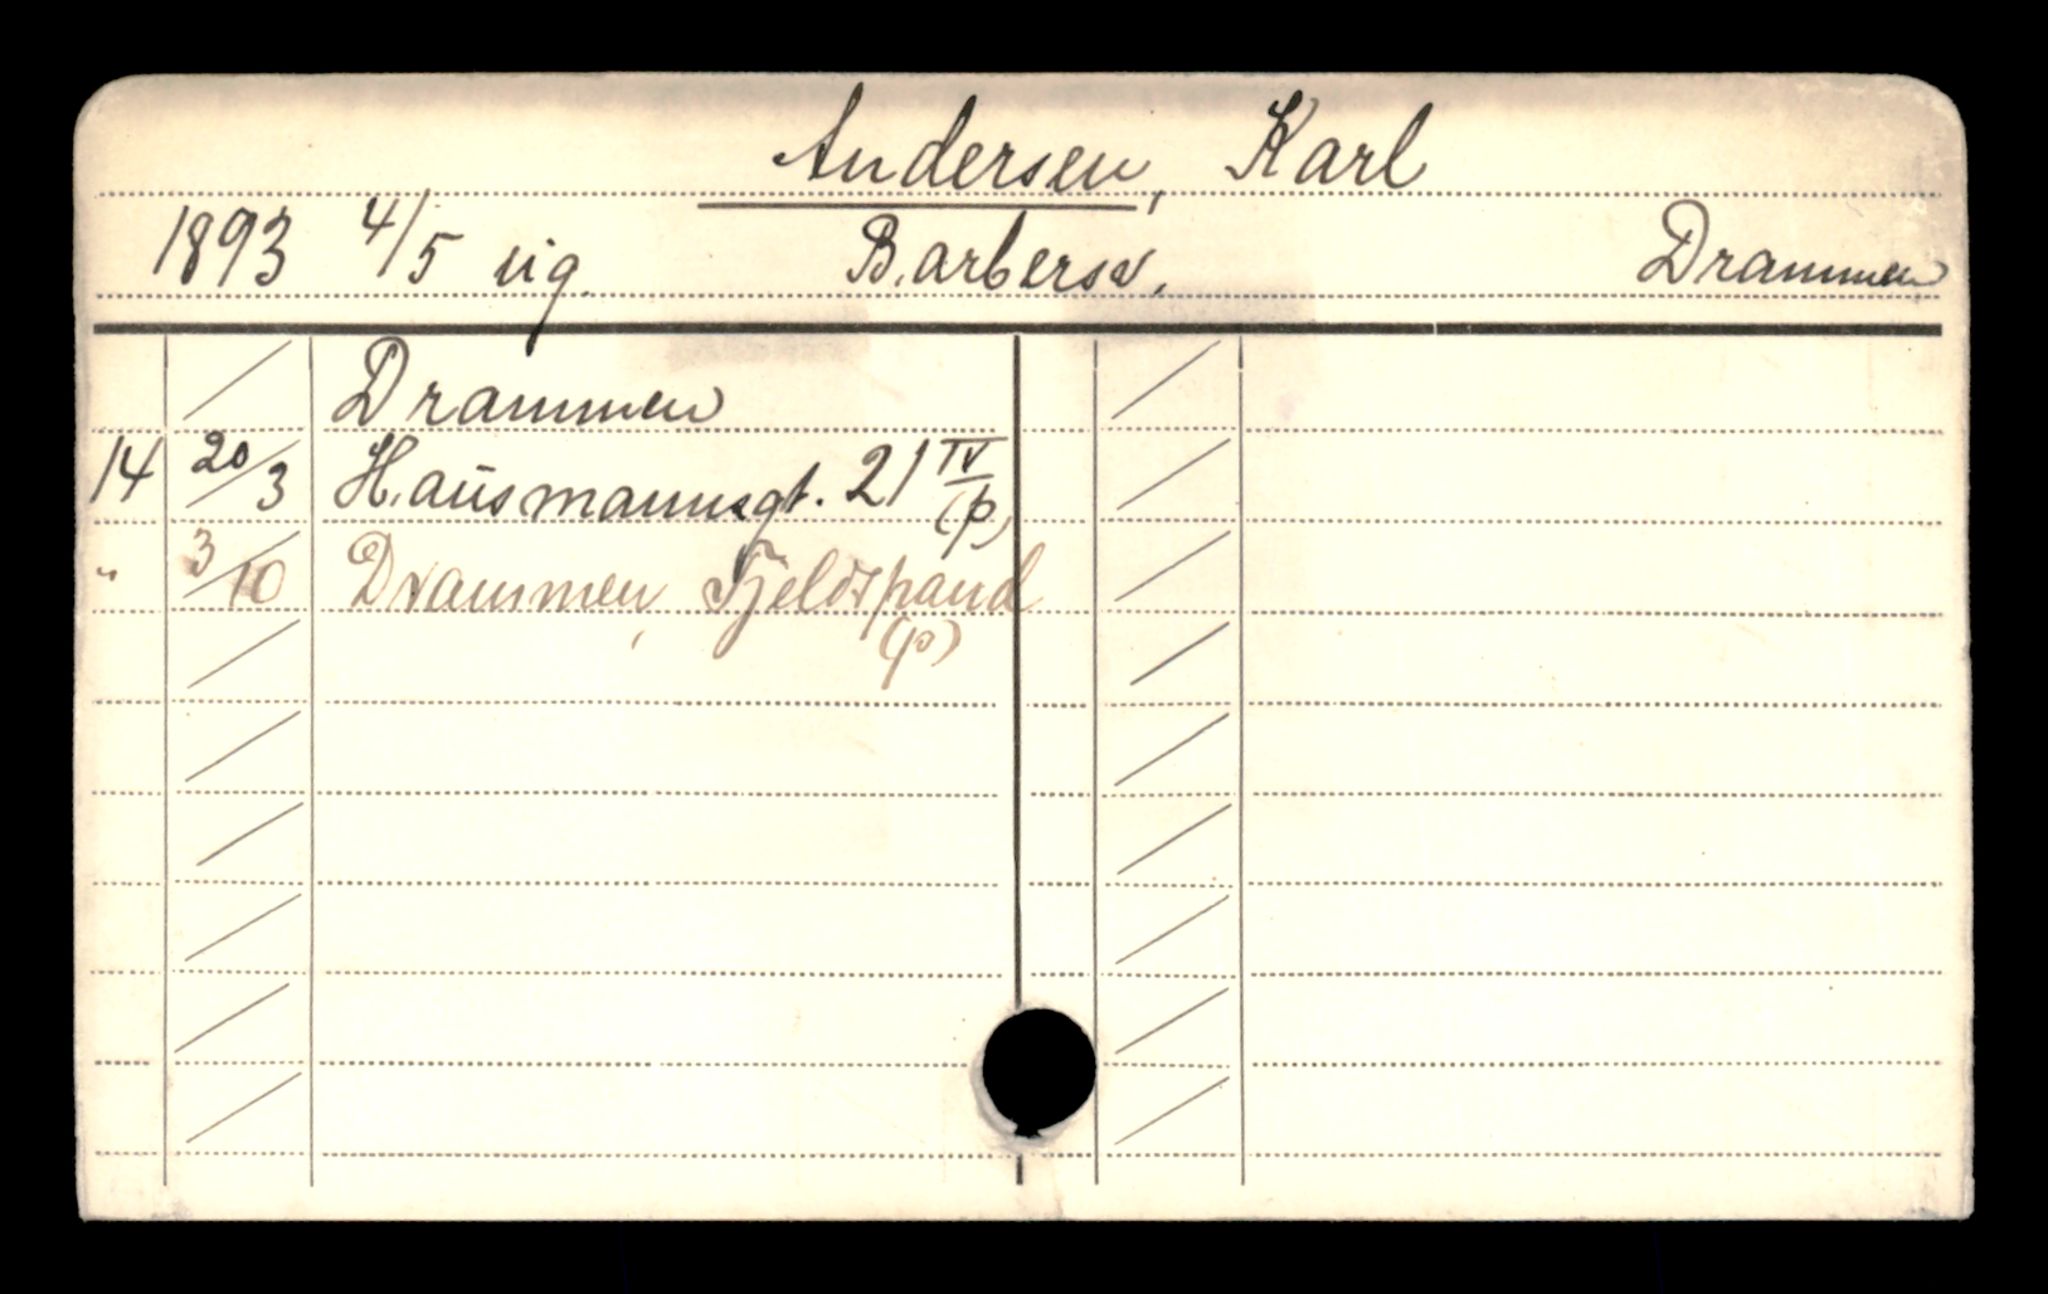 Andersen, Karl
1893 4/5 ug. Barbersv. Drammen
Drammen
14 20/3 Hausmannsgt. 21 IV (p)
" 3/10 Drammen, (p)